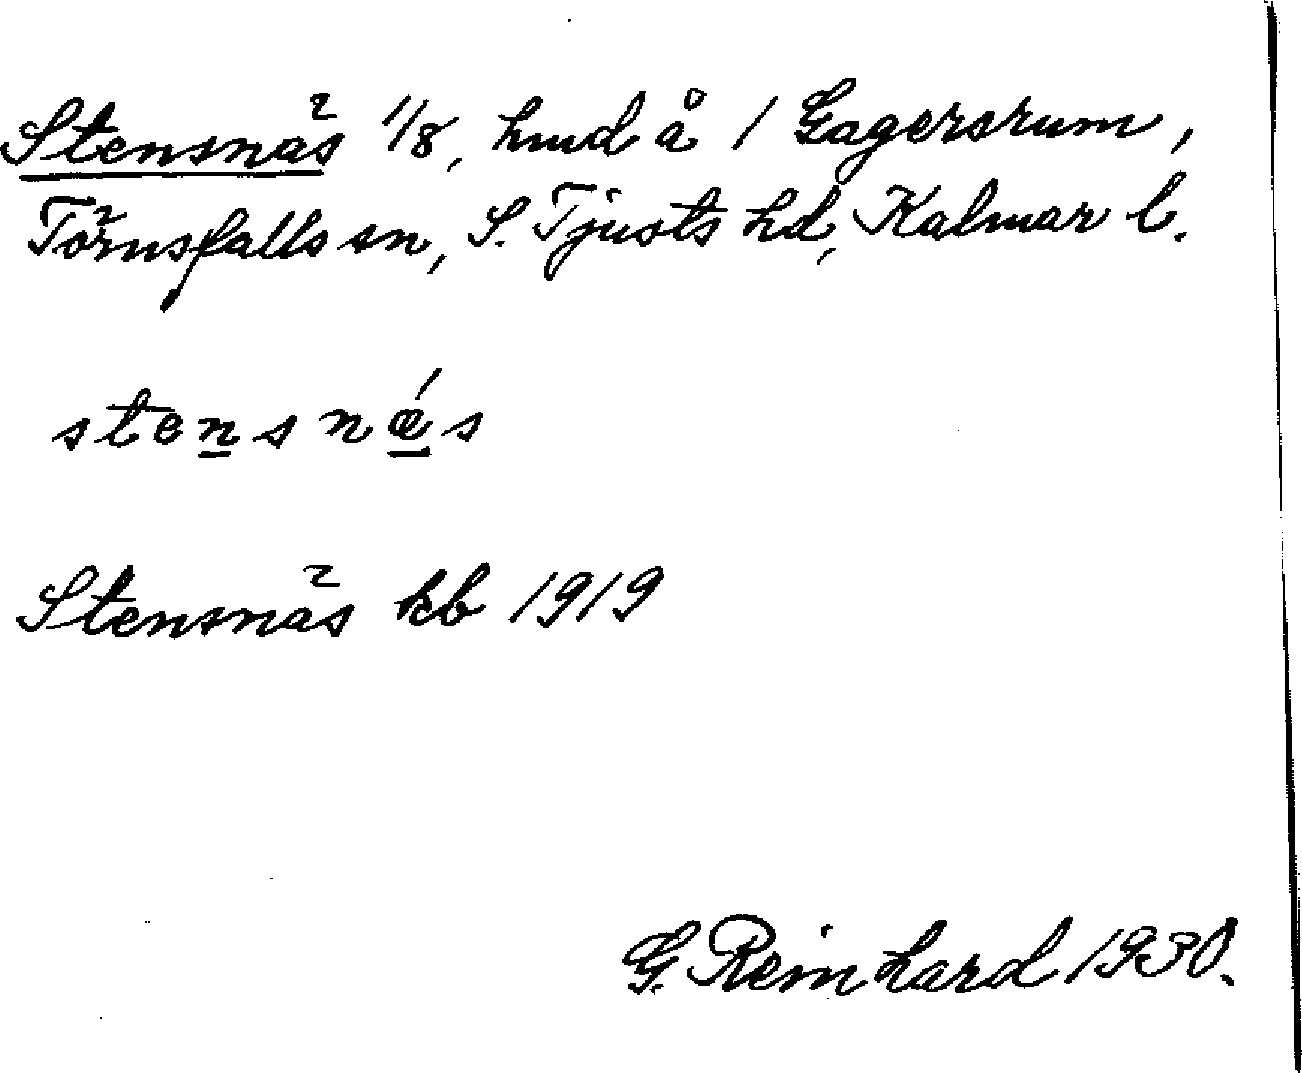 Stensnäs 1/8, hmd å 1 Gagersrum,
Törnsfalls sn, S. Tjusts hd, Kalmar l.
stensnǽs
Stensnäs kb 1919
G. Reinhard 1930.